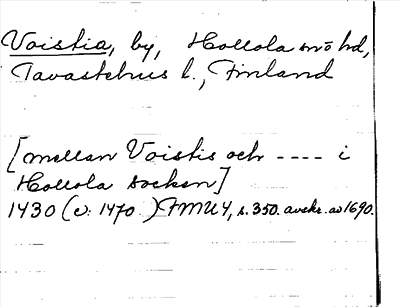 Voistia, by, Hollola sn o hd,
Tavastehus l., Finland
[mellan Voistis och ---- i
Hollola socken]
1430 (v. 1470) FMU 4, s. 350. avskr. av 1690.